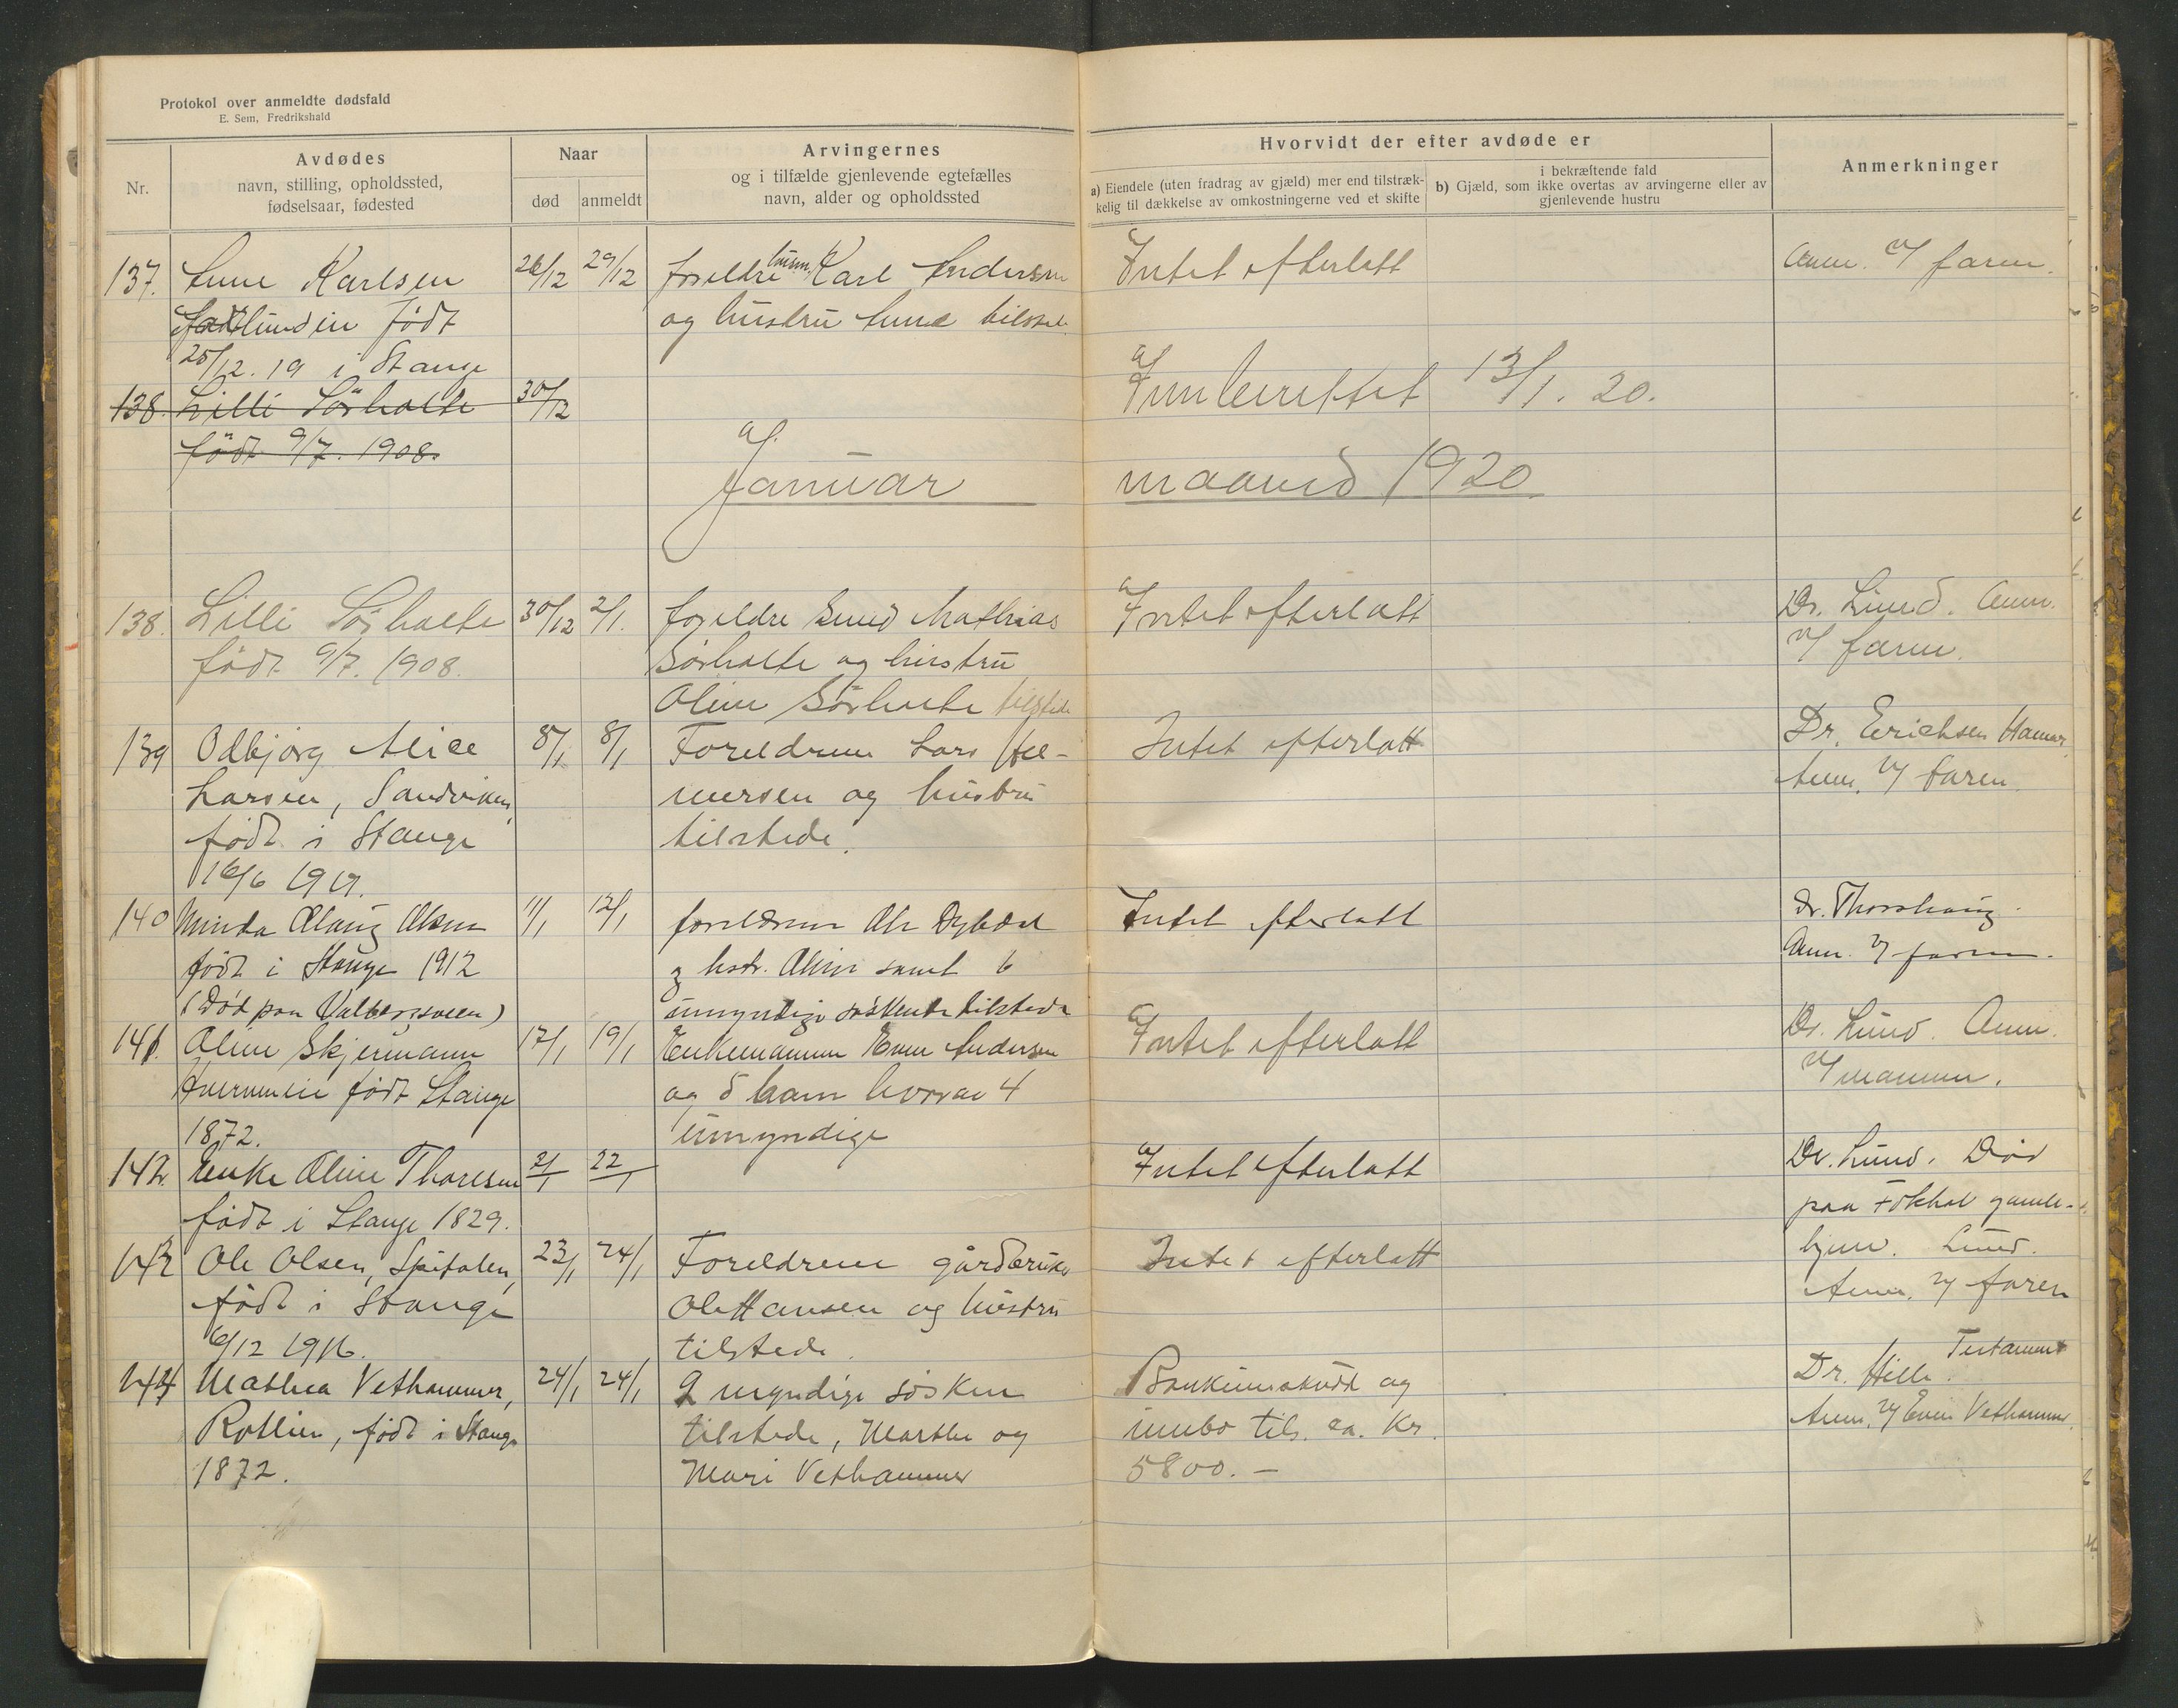 Protokol over anmeldte dødsfald
E. Sem, Fredrikshald
Nr.
Avdødes
navn, stilling, opholdssted,
fødselsaar, fødested
Naar
død
anmeldt
Arvingernes
og i tilfælde gjenlevende egtefælles
navn, alder og opholdssted
Hvorvidt der efter avdøde er
a) Eiendele (uten fradrag av gjæld) mer end tilstræk-
kelig til dækkelse av omkostningerne ved et skifte
i bekræftende fald
b) Gjæld, som ikke overtas av arvingerne eller av
gjenlevende hustru
Anmerkninger
137. Karlsen 26/12 29/12 foreldre Karl Andersen Intet efterlatt Anm. v/ faren.
født og hustru tilsted.
25/12. 19 i Stange
138. Lilli Sörholte 30/12 Innberettet 13/1. 20.
födt 9/7. 1908.
Januar maaned 1920
138. Lilli Sörholte 30/12 2/1. foreldre Mathias Intet efterlatt Dr. Lund. Anm.
födt 9/7. 1908. Sörholte og hustru v/ faren.
Oline Sörholte tilstede
139 Odbjörg Alice 8/1 8/1 Foreldrene Lars Hel- Intet efterlatt Dr. Erichsen Hamar
Larsen, Sandviken, mersen og hustru Anm. v/ faren.
födt i Stange tilstede.
16/6 1919.
140 Minda Olaug Olsen 11/1 12/1 foreldrene Ole Dybdal Intet efterlatt Dr. Thorshaug.
födt i Stange 1912 og hstr. Oline samt 6 Anm. v/ faren.
(Död paa ) umyndige söskende tilstede
141. Oline Skjermann 17/1 19/1 Enkemannen Even Andersen Intet efterlatt Dr. Lund. Anm.
födt Stange og 5 barn hvorav 4 v/ mannen.
1872. umyndige
142. Enke Oline Thoresen 2/1 22/1 Intet efterlatt Dr. Lund. Död
födt i Stange 1829. paa gamle-
hjem. Lund.
143 Ole Olsen, Spitalen, 23/1 24/1 Foreldrene gårdbruker Intet efterlatt Anm. v/ faren
födt i Stange Ole Hansen og hustru
6/12 1916. tilstede.
144 Mathea Vethammer, 24/1 24/1 2 myndige sösken Bankinnskudd og Dr. Hille. Testament
Rotlien, födt i Stange tilstede, Marthe og innbo tils. ca. Kr. Anm. v/ Even Vethammer.
1872. Mari Vethammer 5800.-